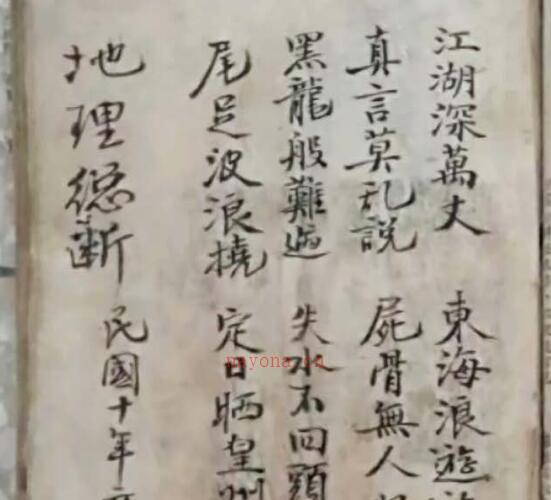 江湖深萬丈 東海浪遊
真言莫乱說 屍骨無人
黑龍般難 失水不回頭
尾足波浪撓 定日晒皇
地理總断 民國十年
nayona.cn